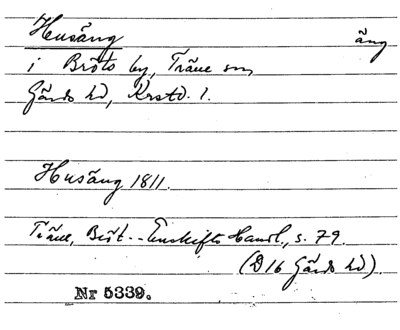 Husäng äng
i Bröts by, Träne sn,
Gärds hd, Krstd. l.
Husäng 1811.
Träne, Bröt. - Enskifts Handl., s. 79.
(D16 Gärds hd).
Nr 5339.